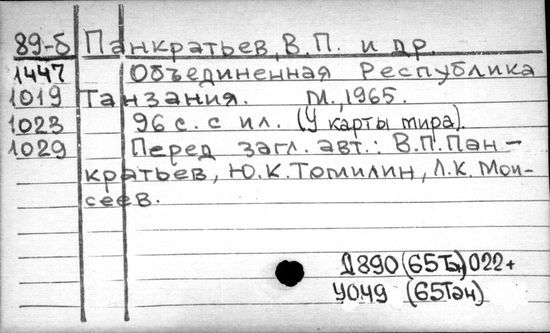 89-б Панкратьев, В.П. и др.
1447 Объединенная Республика
1019 Танзания. М., 1965.
1023 96 с. с ил. (У карты мира).
1029 Перед загл. авт.: В.П.Пан-
кратьев, Ю.К.Томилин, Л.К. Мои-
сеев.
Д890(65Тан)022+
У049 (65Тан)